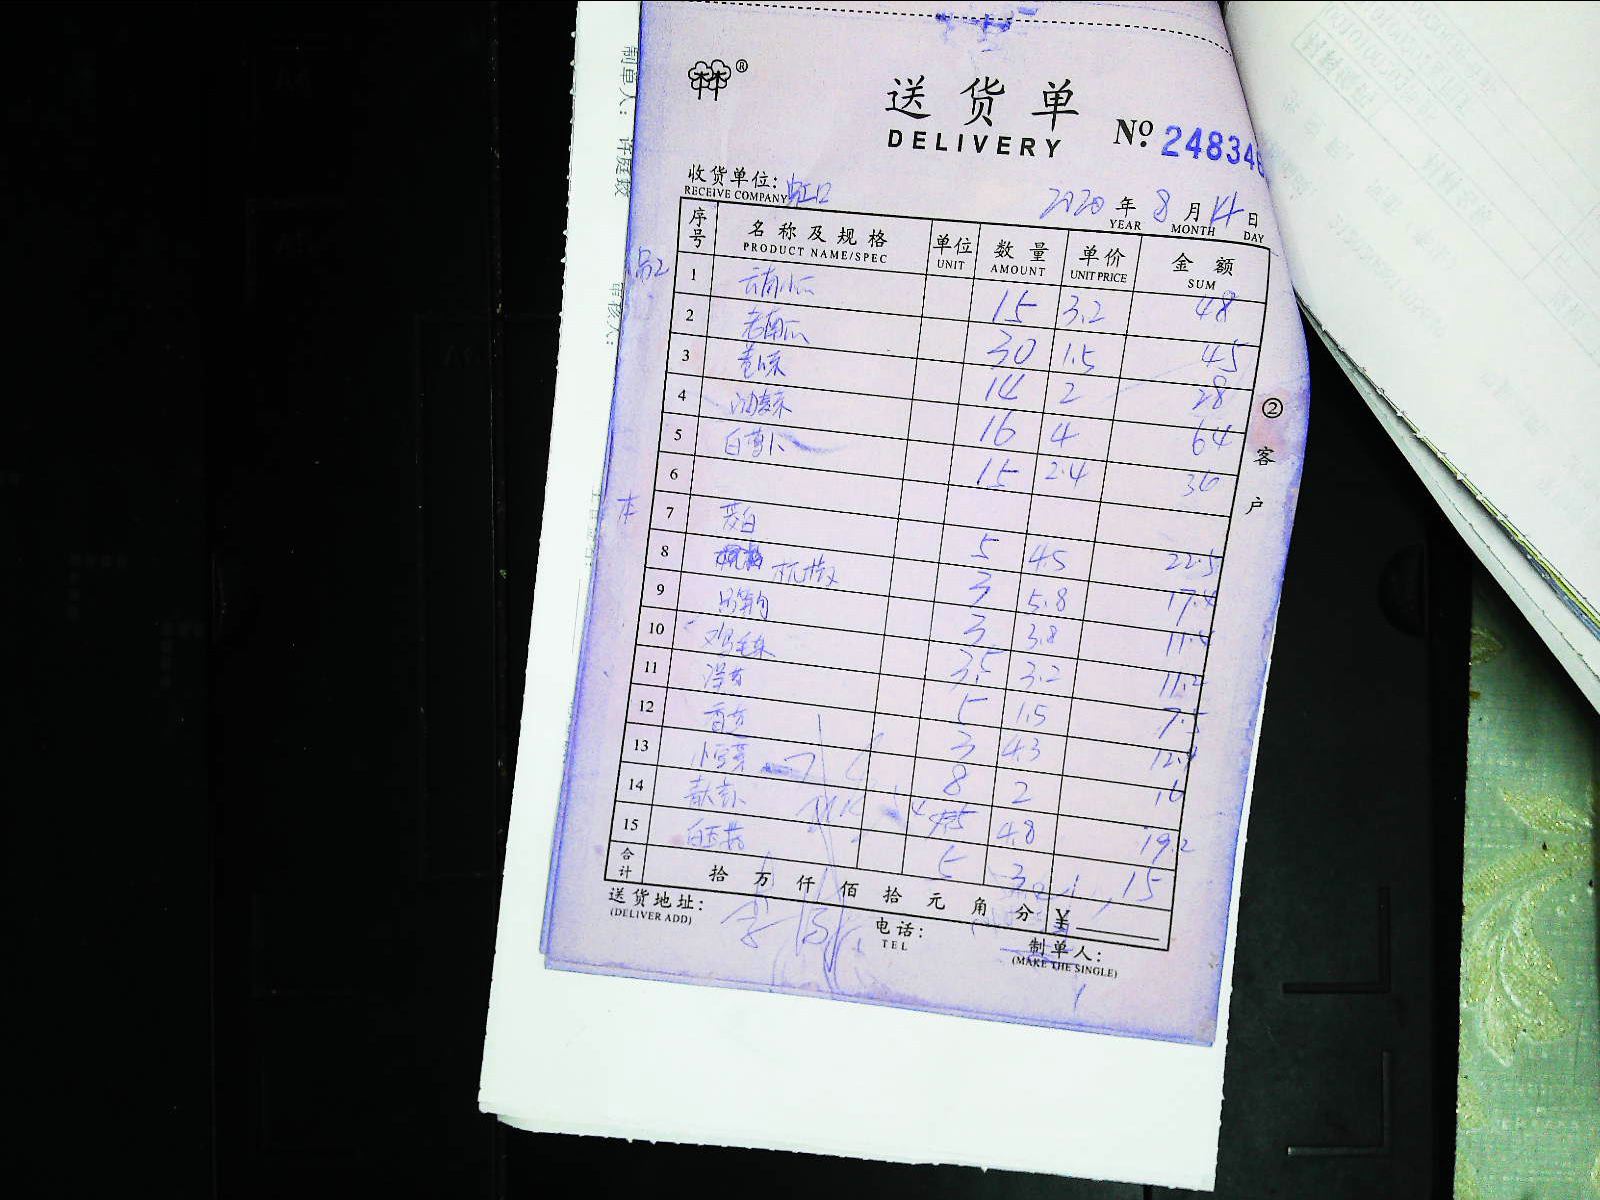 送货单
DELIVERY
No. 24834
收货单位: 虹口
RECEIVE COMPANY
2020 年 8 月 14 日
YEAR MONTH DAY
序号 名称及规格 单位 数量 单价 金额
PRODUCT NAME/SPEC UNIT AMOUNT UNIT PRICE SUM
1 云南小瓜 15 3.2 48
2 老南瓜 30 1.5 45
3 卷心菜 14 2 28
4 油麦菜 16 4 64
5 白萝卜 15 2.4 36
6
7 茭白 5 4.5 22.5
8 杭椒 3 5.8 17.4
9 3 3.8 11.4
10 鸡毛菜 3.5 3.2 11.2
11 洋葱 5 1.5 7.5
12 香芹 3 4.3 12.9
13 小豆芽 8 2 16
14 4 4.8 19.2
15 白玉菇 5 3 15
合计 拾 万 仟 佰 拾 元 角 分 ¥
送货地址:
(DELIVER ADD)
电话:
TEL
制单人:
(MAKE THE SINGLE)
② 客户
制单人: 许庭
审核人: